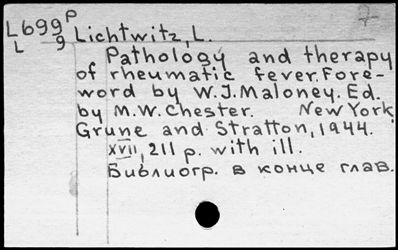 L699 P
L 9 Lichtwitz, L.
Pathology and therapy
of rheumatic fever. Fore-
word by W.J. Maloney. Ed.
by M.W. Chester. New York
Grune and Stratton, 1944.
XVII, 211 p. with ill.
Библиогр. в конце глав.